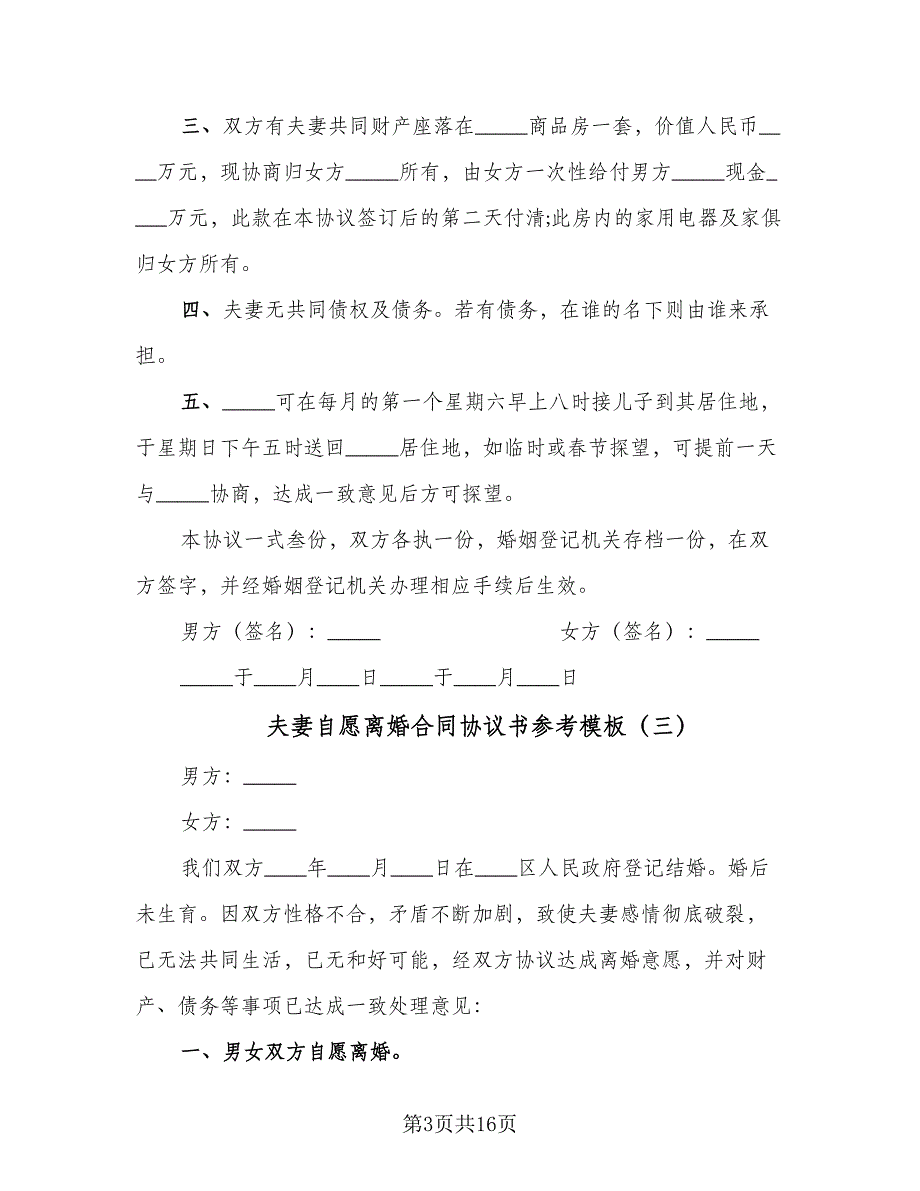 三、双方有夫妻共同财产座落在_____商品房一套，价值人民币__
__万元，现协商归女方_____所有，由女方一次性给付男方_____现金_
___万元，此款在本协议签订后的第二天付清;此房内的家用电器及家俱
归女方所有。
四、夫妻无共同债权及债务。若有债务，在谁的名下则由谁来承
担。
五、_____可在每月的第一个星期六早上八时接儿子到其居住地，
于星期日下午五时送回_____居住地，如临时或春节探望，可提前一天
与_____协商，达成一致意见后方可探望。
本协议一式叁份，双方各执一份，婚姻登记机关存档一份，在双
方签字，并经婚姻登记机关办理相应手续后生效。
男方（签名）：_____ 女方（签名）：_____
_____于____月____日_____于____月____日
夫妻自愿离婚合同协议书参考模板（三）
男方：_____
女方：_____
我们双方____年____月____日在____区人民政府登记结婚。婚后
未生育。因双方性格不合，矛盾不断加剧，致使夫妻感情彻底破裂，
已无法共同生活，已无和好可能，经双方协议达成离婚意愿，并对财
产、债务等事项已达成一致处理意见：
一、男女双方自愿离婚。
第3页共16页